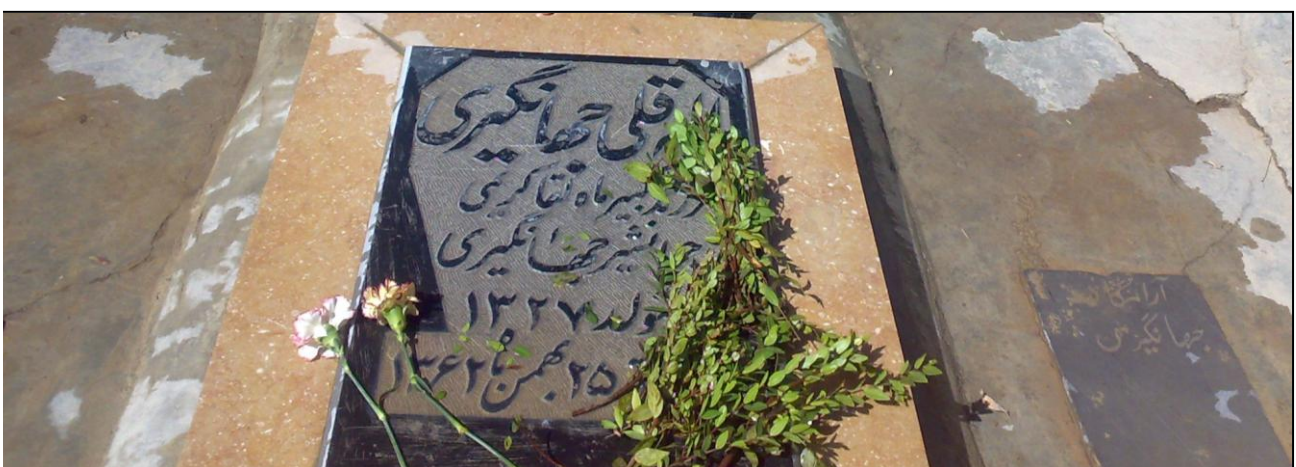 قلی جهانگیری
ماه لقا
جوانشیر جهانگیری
تولد ۱۳۲۷
۲۵ بهمن ماه ۱۳۶۲
آرامگاه
جهانگیری